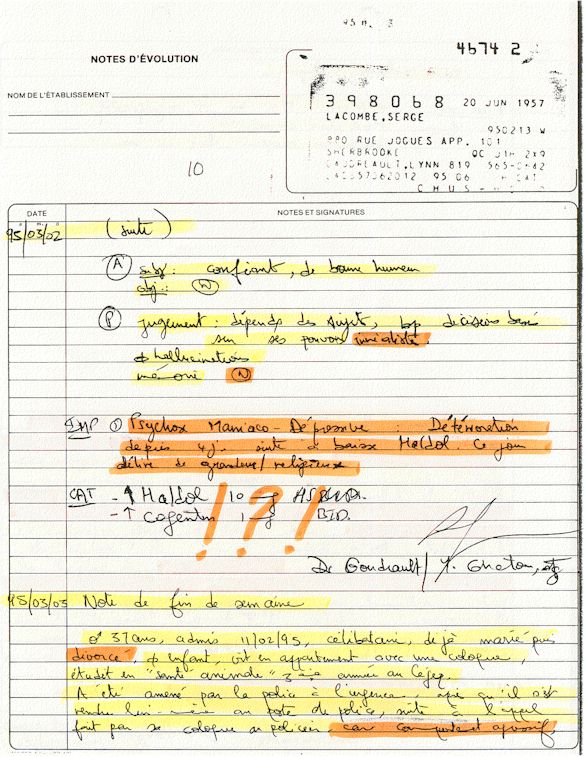 4674 2
NOTES D'ÉVOLUTION
NOM DE L'ÉTABLISSEMENT
398068 20 JUN 1957
LACOMBE,SERGE
950213 W
RUE JOGUES APP. 101
SHERBROOKE QC J1H 2X9
LYNN 819 565-
95 06
CHUS-
10
DATE
NOTES ET SIGNATURES
95/03/02 (suite)
(A) subj: confiant, de bonne humeur
obj: (N)
(P) jugement: dépend des sujets, bp décisions basés
sur ses pouvoirs irréaliste
ϕ hallucinations
mémoire (N)
IMP ① Psychose Maniaco-Dépressive : Détérioration
depuis 4j. suite à baisse Haldol. Ce jour
délire de grandeur/religieux
CAT - ↑ Haldol 10
- ↑ Cogentin 1 BID.
!?!
Dr Gondrault/
95/03/05 Note de fin de semaine
♂ 37 ans, admis 11/02/95, célibataire, déjà marié puis
divorcé, ϕ enfant, vit en appartement avec une cologue,
étudit en "santé animale" 3ième année au Cegep.
A été amené par la police à l'urgence, après qu'il s'est
rendu lui-même au poste de police, suite à l'appel
fait par sa cologue au policier, car comportement agressif